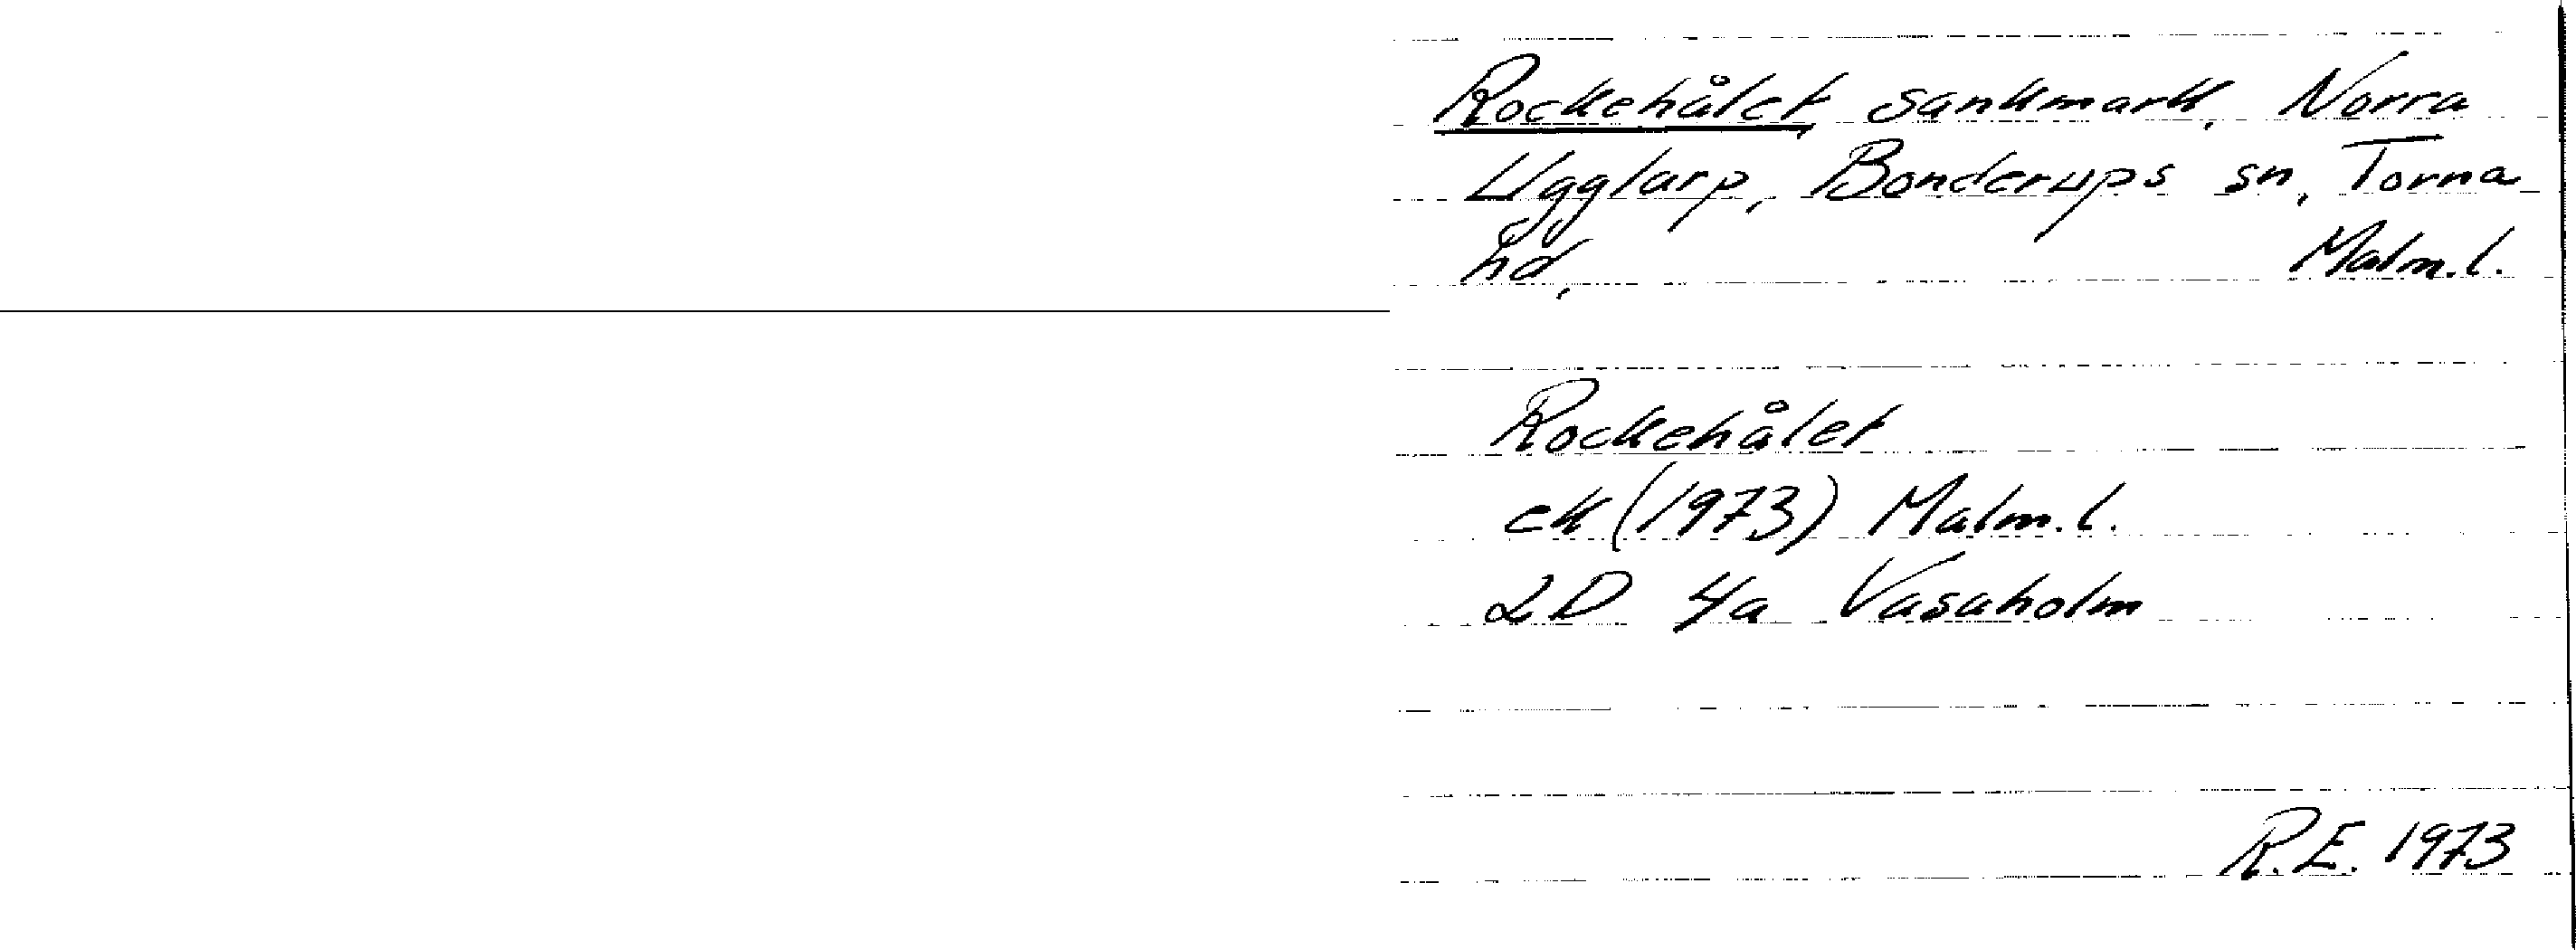 Rockehålet, sankmark, Norra
Ugglarp, Bonderups sn, Torna
hd, Malm.l.
Rockehålet
ek (1973) Malm.l.
2D 4a Vasaholm
R.E. 1973